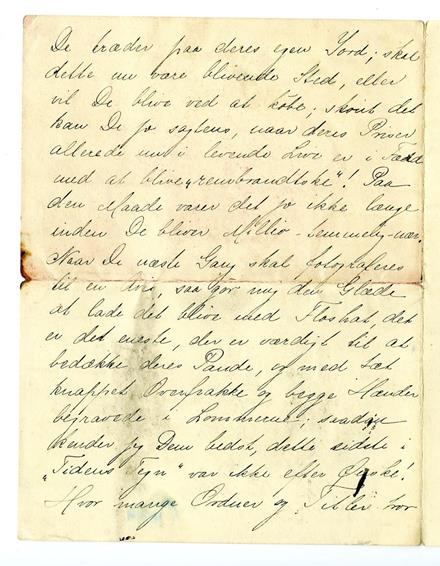 De træder paa deres egen Jord; skal
dette nu være blivende Sted, eller
vil De blive ved at købe; skønt det
kan De jo sagtens, naar deres Priser
allerede nu i levende Live er i Færd
med at blive „rembrandtske"! Paa
den Maade varer det jo ikke længe
inden De bliver Millio-
Naar De næste Gang skal fotograferes
til en Avis, saa gør mig den Glæde
at lade det blive med Floshat, det
er det eneste, der er værdigt til at
bedække deres Pande, og med tæt
knappet Overfrakke og begge Hænder
begravede i Lommerne; saadan
kender jeg Dem bedst, dette sidste i
„Tidens Tegn" var ikke efter Ønske!
Hvor mange Ordner og Titler har